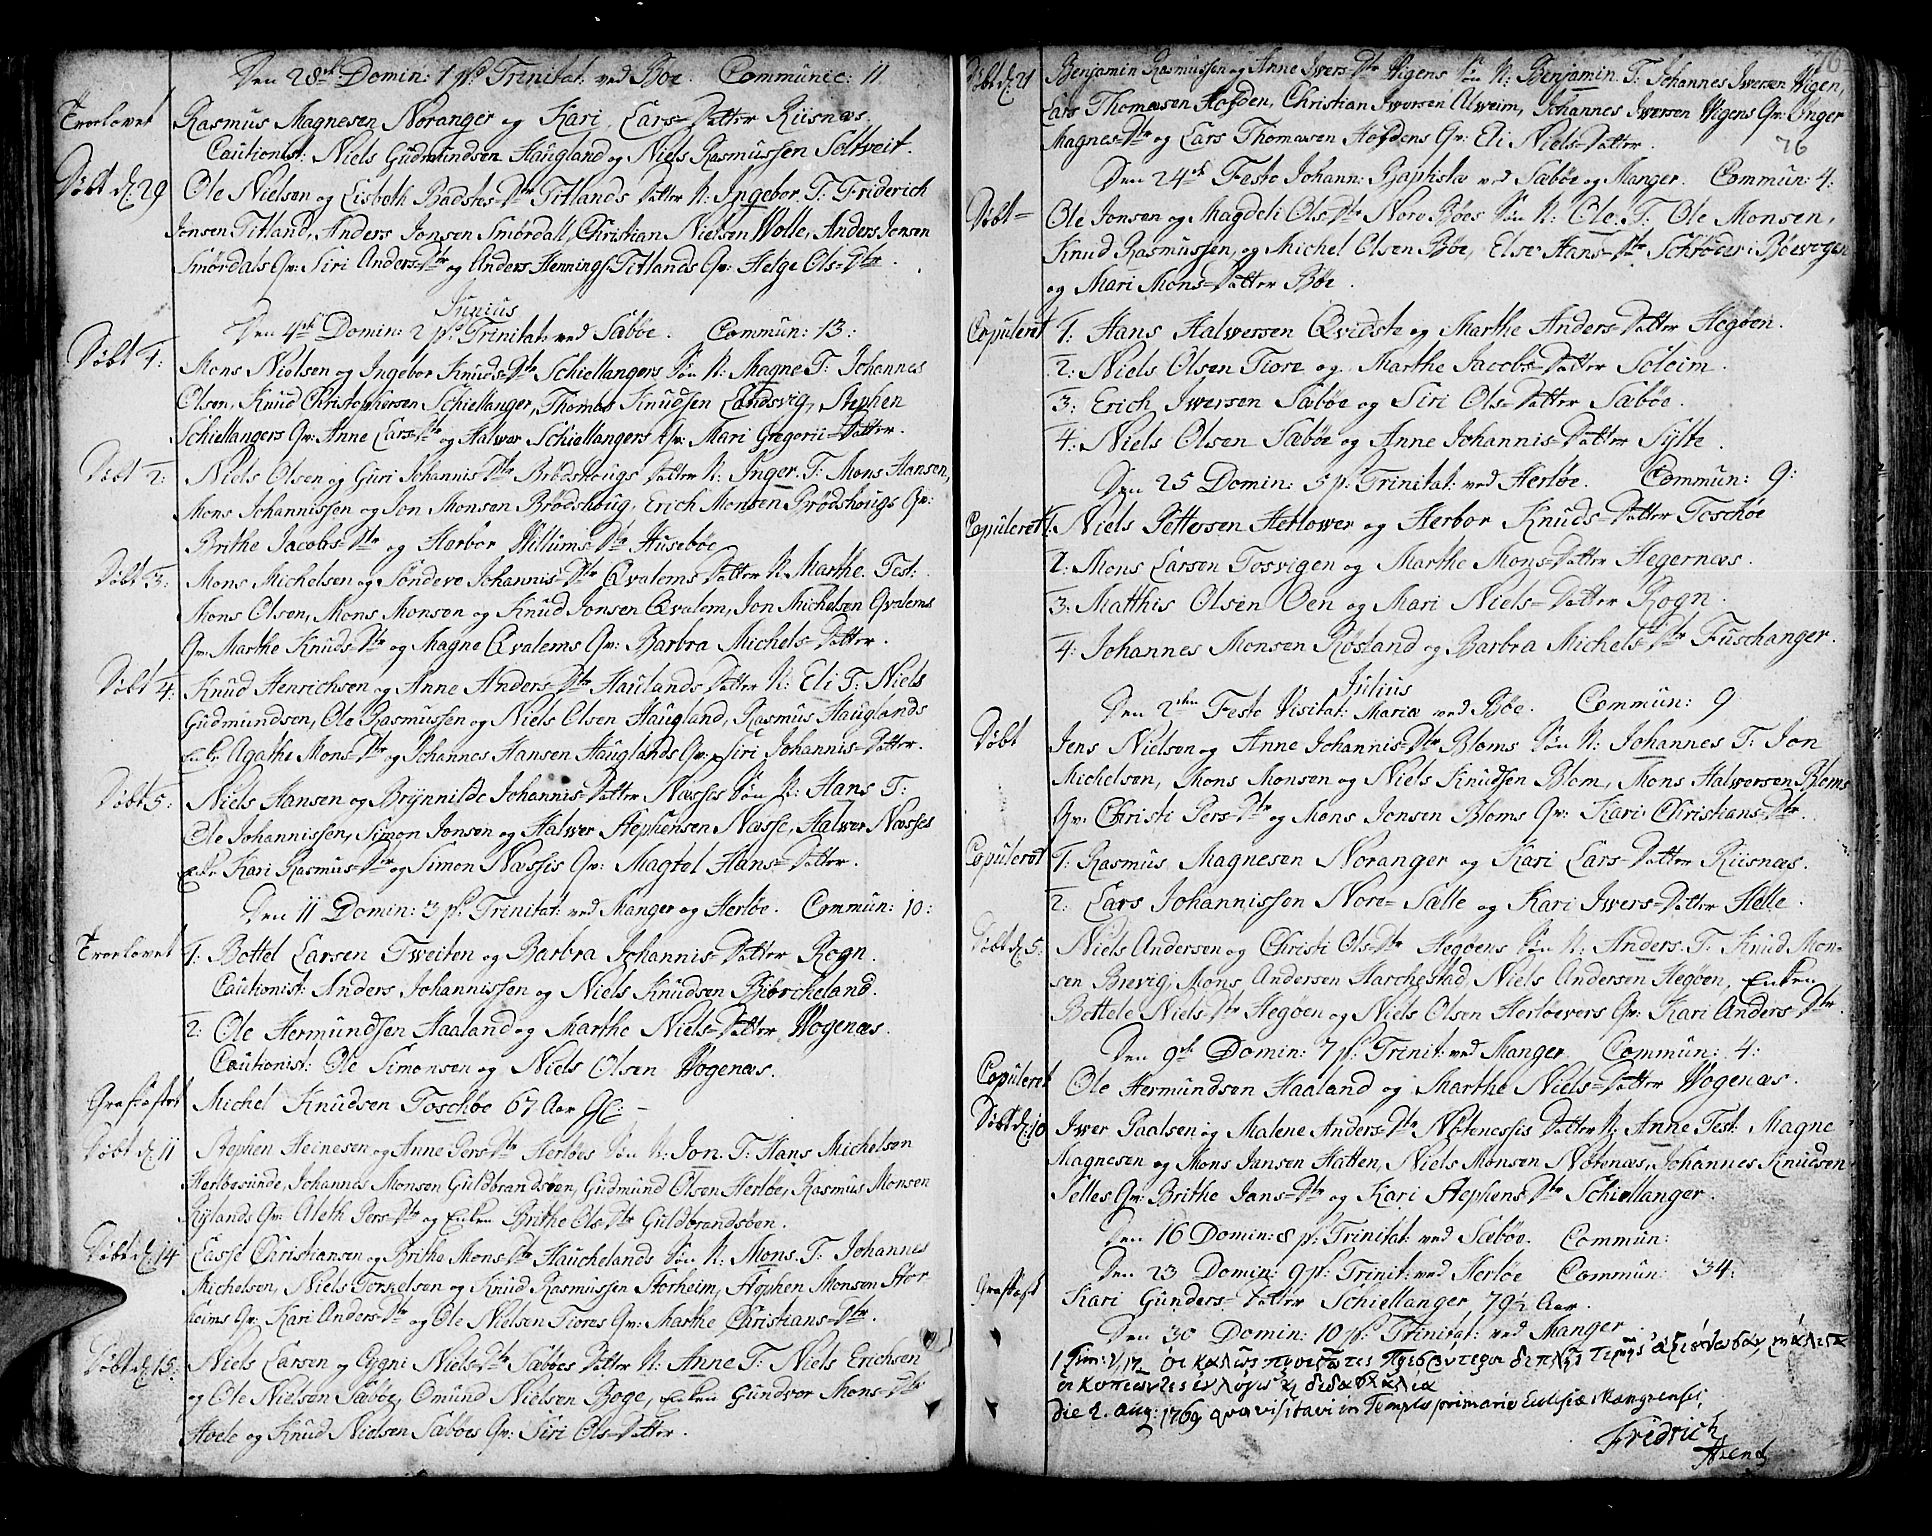 Den 28de Domin: 1 p. Trinitat: ved Bøe. Communic: 11
Trorlovet Rasmus Magnesen Noranger og Kari Lars-Datter Riisnæs.
Cautionist: Niels Gudmundsen Haugland og Niels Rasmussen Soltveit.
Døbt d: 29 Ole Nielsen og Lisbeth Badstes-Dtr Titlands Datter N: Ingebor. T: Friderich
Jonsen Titland, Anders Jonsen Smørdall, Christian Nielsen Wolle, Anders Jonsen
Smørdals Qv: Siri Anders-Dtr og Anders Hennings Titlands Qv: Helge Ols-Dtr.
Junius
Den 4de Domin: 2 p. Trinitat: ved Sæbøe. Commun: 13:
Døbt 1: Mons Nielsen og Ingebor Knuds-Dtr Schiellangers Søn N: Magne T: Johannes
Olsen, Knud Christophersen Schiellanger, Thomas Knudsen Landsvig, Stephen
Schiellangers Qv: Anne Lars-Dtr og Halwer Schiellangers Qv: Mari Gregorii-Datter.
Døbt 2: Niels Olsen og Guri Johannis-Dtr Brødshougs Datter N: Inger. T: Mons Hansen,
Mons Johannissen og Jon Monsen Brødshoug, Erich Monsen Brødshougs Qv:
Brithe Jacobs-Dtr og Herbor Willums-Dtr Husebøe
Døbt 3: Mons Michelsen og Søndeve Johannis-Dtr Qvalems Datter N: Marthe. Test:
Mons Olsen, Mons Monsen og Knud Jonsen Qvalem, Jon Michelsen Qvalems
Qv: Marthe Knuds-Dtr og Magne Qvalems Qv: Barbra Michels-Datter.
Døbt 4: Knud Henrichsen og Anne Anders-Dtr Hauglands Datter N: Eli T: Niels
Gudmundsen, Ole Rasmussen og Niels Olsen Haugland, Rasmus Hauglands
Enke Agathe Mons-Dtr og Johannes Hansen Hauglands Qv: Siri Johannis-Datter.
Døbt 5: Niels Hansen og Brynnilde Johannis-Datter Næsses Søn N: Hans T:
Ole Johannissen, Simon Jonsen og Halwer Stephensen Næsse, Halwer Næsses
Enke Kari Rasmus-Dtr og Simon Næsses Qv: Magtel Hans-Datter.
Den 11 Domin: 3 p. Trinitat: ved Manger og Herløe. Commun: 10:
Trorlovet 1: Bottel Larsen Tweiten og Barbra Johannis-Datter Rogn.
Cautionist: Anders Johannissen og Niels Knudsen Biørcheland.
2: Ole Hermundsen Haaland og Marthe Niels-Datter Wogenæs.
Cautionist: Ole Simonsen og Niels Olsen Wogenæs.
Graffæstet Michel Knudsen Toschøe 67 Aar Gl: –
Døbt d: 11 Stephen Heinesen og Anne Pers-Dtr Herløes Søn N: Jon. T: Hans Michelsen
Herløesunde, Johannes Monsen Guldbrandsøen, Gudmund Olsen Herløe, Rasmus Monsen
Rylands Qv: Aleth Pers-Dtr og Enken Brithe Ols-Dtr Guldbrandsøen.
Døbt d: 14 Lasse Christiansen og Brithe Mons-Dtr Hauchelands Søn N: Mons. T: Johannes
Michelsen, Niels Torkelsen og Knud Rasmussen Storheim, Stephen Monsen Stor-
heims Qv: Kari Anders-Dtr og Ole Nielsen Fiores Qv: Marthe Christians-Dtr.
Døbt d: 15: Niels Larsen og Lygni Niels-Dtr Sæbøes Datter N: Anne T: Niels Erichsen
og Ole Nielsen Sæbøe, Omund Nielsen Boge, Enken Gundvor Mons-Dtr
Hoele og Knud Nielsen Sæbøes Qv: Siri Ols-Datter.
Døbt d: 21 Benjamin Rasmussen og Anne Iwers-Dtr Wigens Søn N: Benjamin. T: Johannes Iwersen Wigen,
Lars Thomæsen Høyden, Christian Iwersen Alweim, Johannes Iwersen Wigens Qv: Inger
Magnes-Dtr og Lars Thomæsen Høydens Qv: Eli Niels-Datter.
76
Den 24de Festo Johann: Baptistæ ved Sæbøe og Manger. Commun: 4:
Døbt- Ole Jonsen og Magdeli Ols-Dtr Nore Bøes Søn N: Ole. T: Ole Monsen,
Knud Rasmussen, og Michel Olsen Bøe, Else Hans-Dtr Schrøder i Bøevogen
og Mari Mons-Datter Bøe.
Copuleret 1: Hans Halwersen Qvidste og Marthe Anders-Datter Hegøen.
2: Niels Olsen Fiore og Marthe Jacobs-Datter Soleim.
3: Erich Iwersen Sæbøe og Siri Ols-Datter Sæbøe.
4: Niels Olsen Sæbøe og Anne Johannis-Datter Sylte.
Den 25 Domin: 5 p. Trinitat: ved Herløe. Commun: 9:
Copuleret 1: Niels Pettersen Hetlower og Herbor Knuds-Datter Toschøe
2: Mons Larsen Tosvigen og Marthe Mons-Datter Hegernæs.
3: Matthis Olsen Oen og Mari Niels-Datter Rogn.
4: Johannes Monsen Røsland og Barbra Michels-Dtr Fuschanger.
Julius
Den 2den Festo Visitat: Mariæ ved Bøe. Commun: 9
Døbt Jens Nielsen og Anne Johannis-Dtr Bloms Søn N: Johannes T: Jon
Michelsen, Mons Monsen og Niels Knudsen Blom, Mons Halwersen Bloms
Qv: Christi Pers-Dtr og Mons Jonsen Bloms Qv: Kari Christians-Dtr.
Copuleret 1: Rasmus Magnesen Noranger og Kari Lars-Datter Riisnæs.
2: Lars Johannissen Nore-Sælle og Kari Iwers-Datter Helle.
Døbt d: 5: Niels Andersen og Christi Ols-Dtr Hegøens Søn N: Anders. T: Knud Mon-
sen Brevig, Mons Andersen Harchestad, Niels Andersen Hegøen, Enken
Bottele Niels-Dtr Hegøen og Niels Olsen Herløevers Qv: Kari Anders-Dtr.
Den 9de Domin: 7 p. Trinit: ved Manger. Commun: 4:
Copuleret Ole Hermundsen Haaland og Marthe Niels-Datter Wogenæs.
Døbt d: 10 Iwer Paalsen og Malene Anders-Dtr Nøtenesses Datter N: Anne Test: Magne
Magnesen og Mons Jansen Hatten, Niels Monsen Nøtenæs, Johannes Knudsen
Selles Qv: Brithe Jans-Dtr og Kari Stephens-Dtr Schiellanger.
Den 16 Domin: 8 p. Trinitat: ved Sæbøe. Commun:
Den 23 Domin: 9 p. Trinit: ved Herløe Commun: 34:
Graffæst Kari Gunders-Datter Schiellanger 79½ Aar.
Den 30 Domin: 10 p. Trinitat: ved Manger.
1 Tim: V, 17. οἱ καλῶς προεστῶτες πρεσβύτεροι διπλῆς τιμῆς ἀξιούσθωσαν, μάλιστα
οἱ κοπιῶντες ἐν λόγῳ κ διδασκαλίᾳ
die 2. Aug: 1769 qva visitavi in Templo primario Eclesiæ Mangrensis,
Fridrich
Arentz